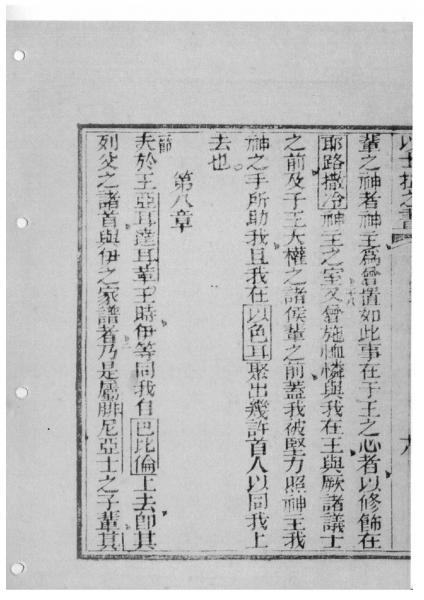 以士拉之書
輩之神者神主為曾置如此事在于王之心者以修飾在
耶路撒冷神主之室又曾施恤憐與我在王與厥諸議士
之前及于王大權之諸侯輩之前蓋我被堅力照神主我
神之手所助我且我在以色耳聚出幾許首人以同我上
去也
第八章
節夫於王亞耳達耳革王時伊等同我自巴比倫上去即其
列父之諸首與伊之家譜者乃是屬腓尼亞士之子輩其